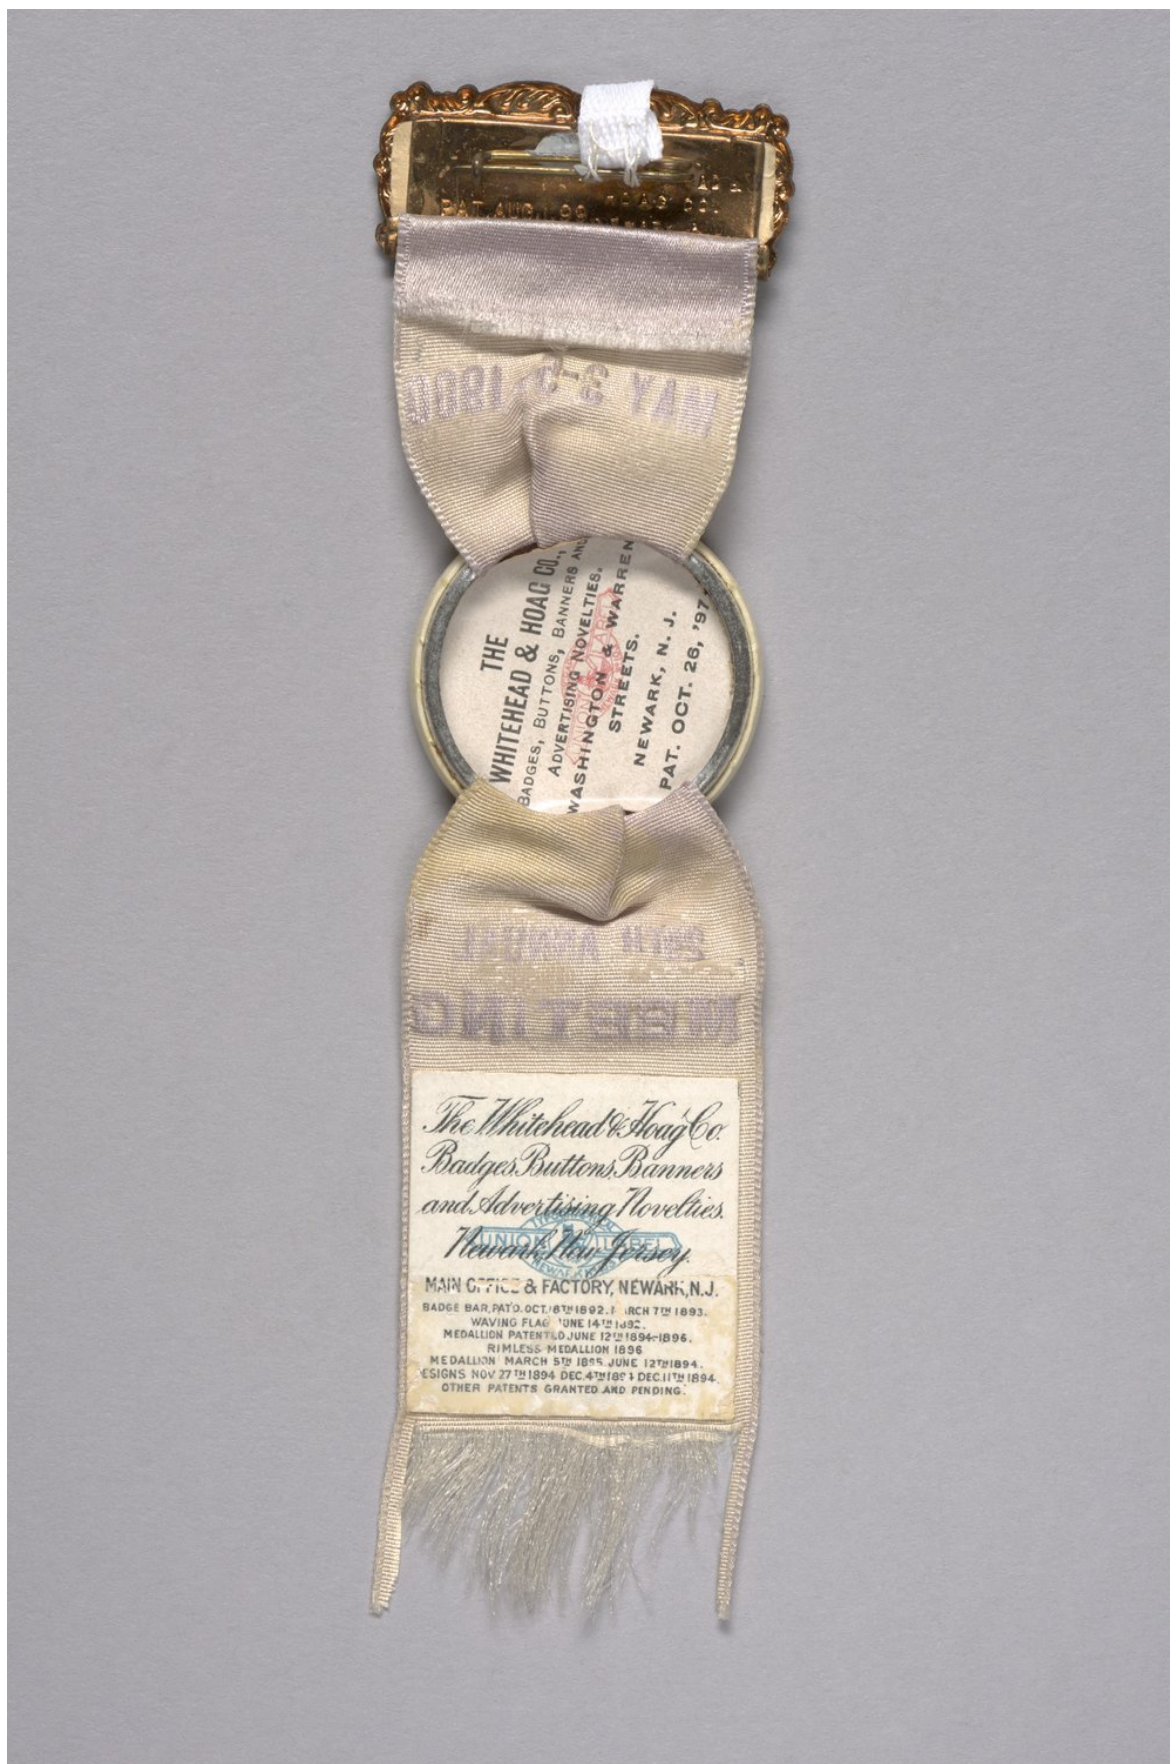 PAT. AUG. 1, 99
MAY 3-9, 190
THE
WHITEHEAD & HOAG CO.,
BADGES, BUTTONS, BANNERS AND
ADVERTISING NOVELTIES.
WASHINGTON & WARREN
STREETS.
NEWARK, N. J.
PAT. OCT. 26, '97
UNION LABEL
ANNUAL
MEETING
The Whitehead & Hoag Co.
Badges, Buttons, Banners
and Advertising Novelties.
Newark, New Jersey.
UNION LABEL
MAIN OFFICE & FACTORY, NEWARK, N.J.
BADGE BAR, PAT'D. OCT. 18TH 1892. MARCH 7TH 1893.
WAVING FLAG JUNE 14TH 1892.
MEDALLION PATENTED JUNE 12TH 1894-1896.
RIMLESS MEDALLION 1896
MEDALLION MARCH 5TH 1895. JUNE 12TH 1894.
DESIGNS NOV 27TH 1894 DEC. 4TH 1894 DEC. 11TH 1894.
OTHER PATENTS GRANTED AND PENDING.